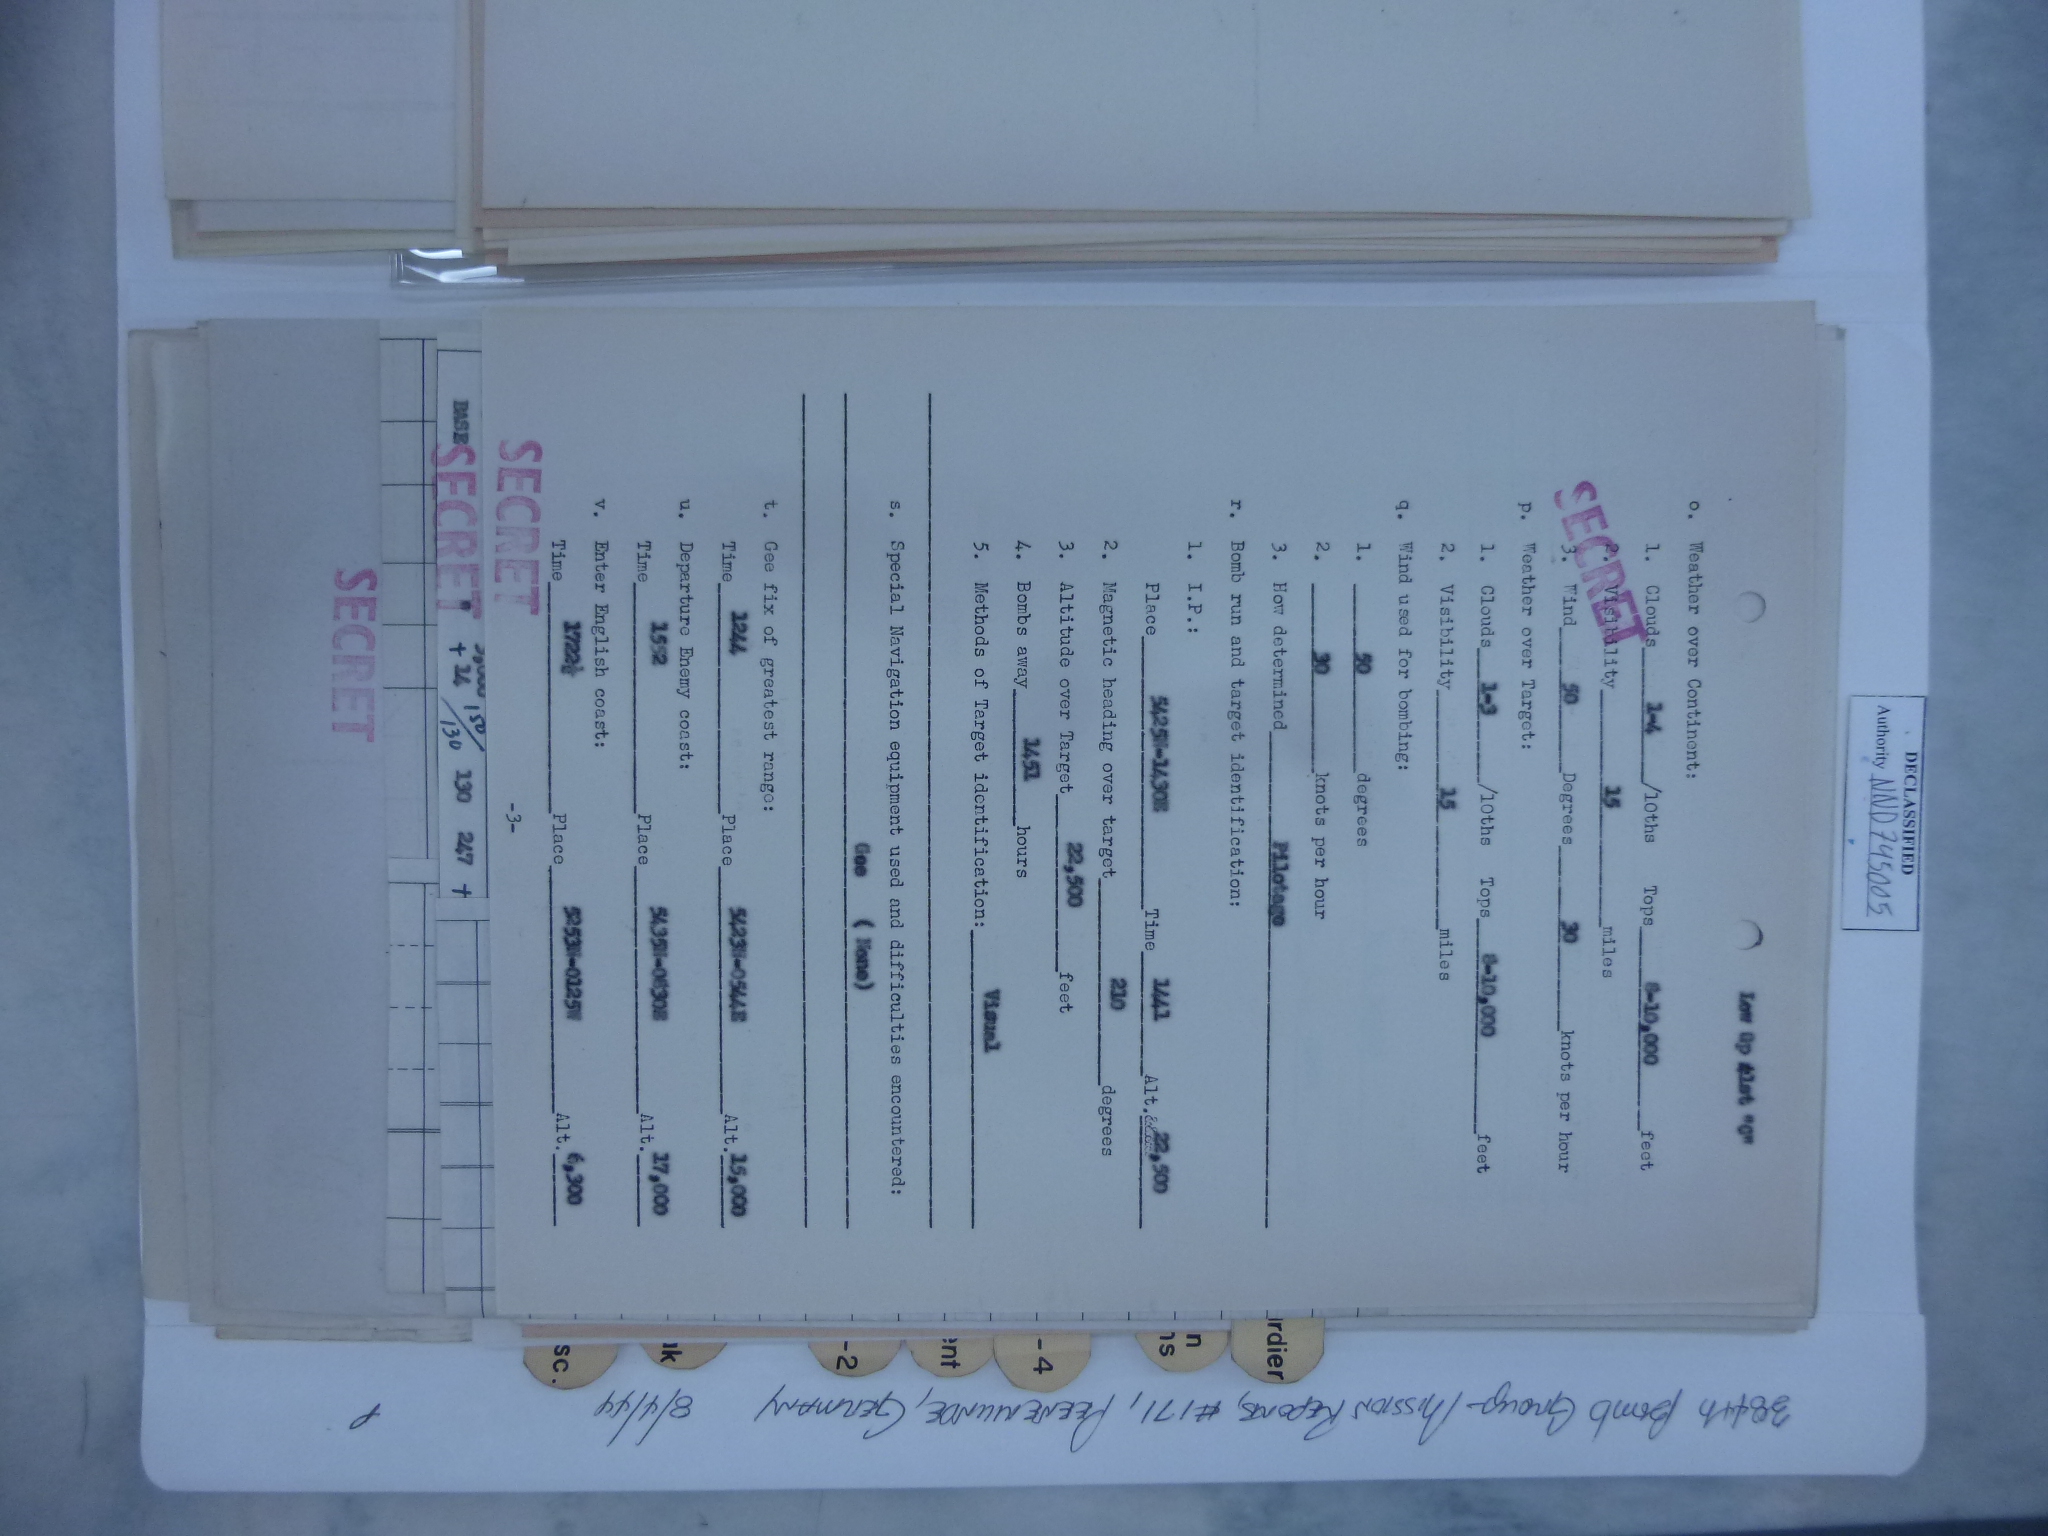 DECLASSIFIED
Authority NND 745005
Low Gp "C"
o. Weather over Continent:
1. Clouds 1-4 /10ths Tops 8-10,000 feet
2. Visibility 15 miles
3. Wind 50 Degrees 30 knots per hour
SECRET
p. Weather over Target:
1. Clouds 1-3 /10ths Tops 8-10,000 feet
2. Visibility 15 miles
q. Wind used for bombing:
1. 50 degrees
2. 30 knots per hour
3. How determined Pilotage
r. Bomb run and target identification:
1. I.P.:
Place 5425N-1430E Time 1441 Alt. 22,500
2. Magnetic heading over target 210 degrees
3. Altitude over Target 22,500 feet
4. Bombs away 1451 hours
5. Methods of Target identification: Visual
s. Special Navigation equipment used and difficulties encountered:
Gee (None)
t. Gee fix of greatest range:
Time 1244 Place 5423N-0544E Alt. 15,000
u. Departure Enemy coast:
Time 1552 Place 5435N-0830E Alt. 17,000
v. Enter English coast:
Time 1722½ Place 5253N-0125W Alt. 6,300
-3-
SECRET
150/
BASE + 14 /130 130 247 +
SECRET
SECRET
rdier
n
ns
-4
ent
-2
ak
sc.
384th Bomb Group - Mission Reports, #171, PEENEMUNDE, GERMANY 8/4/44